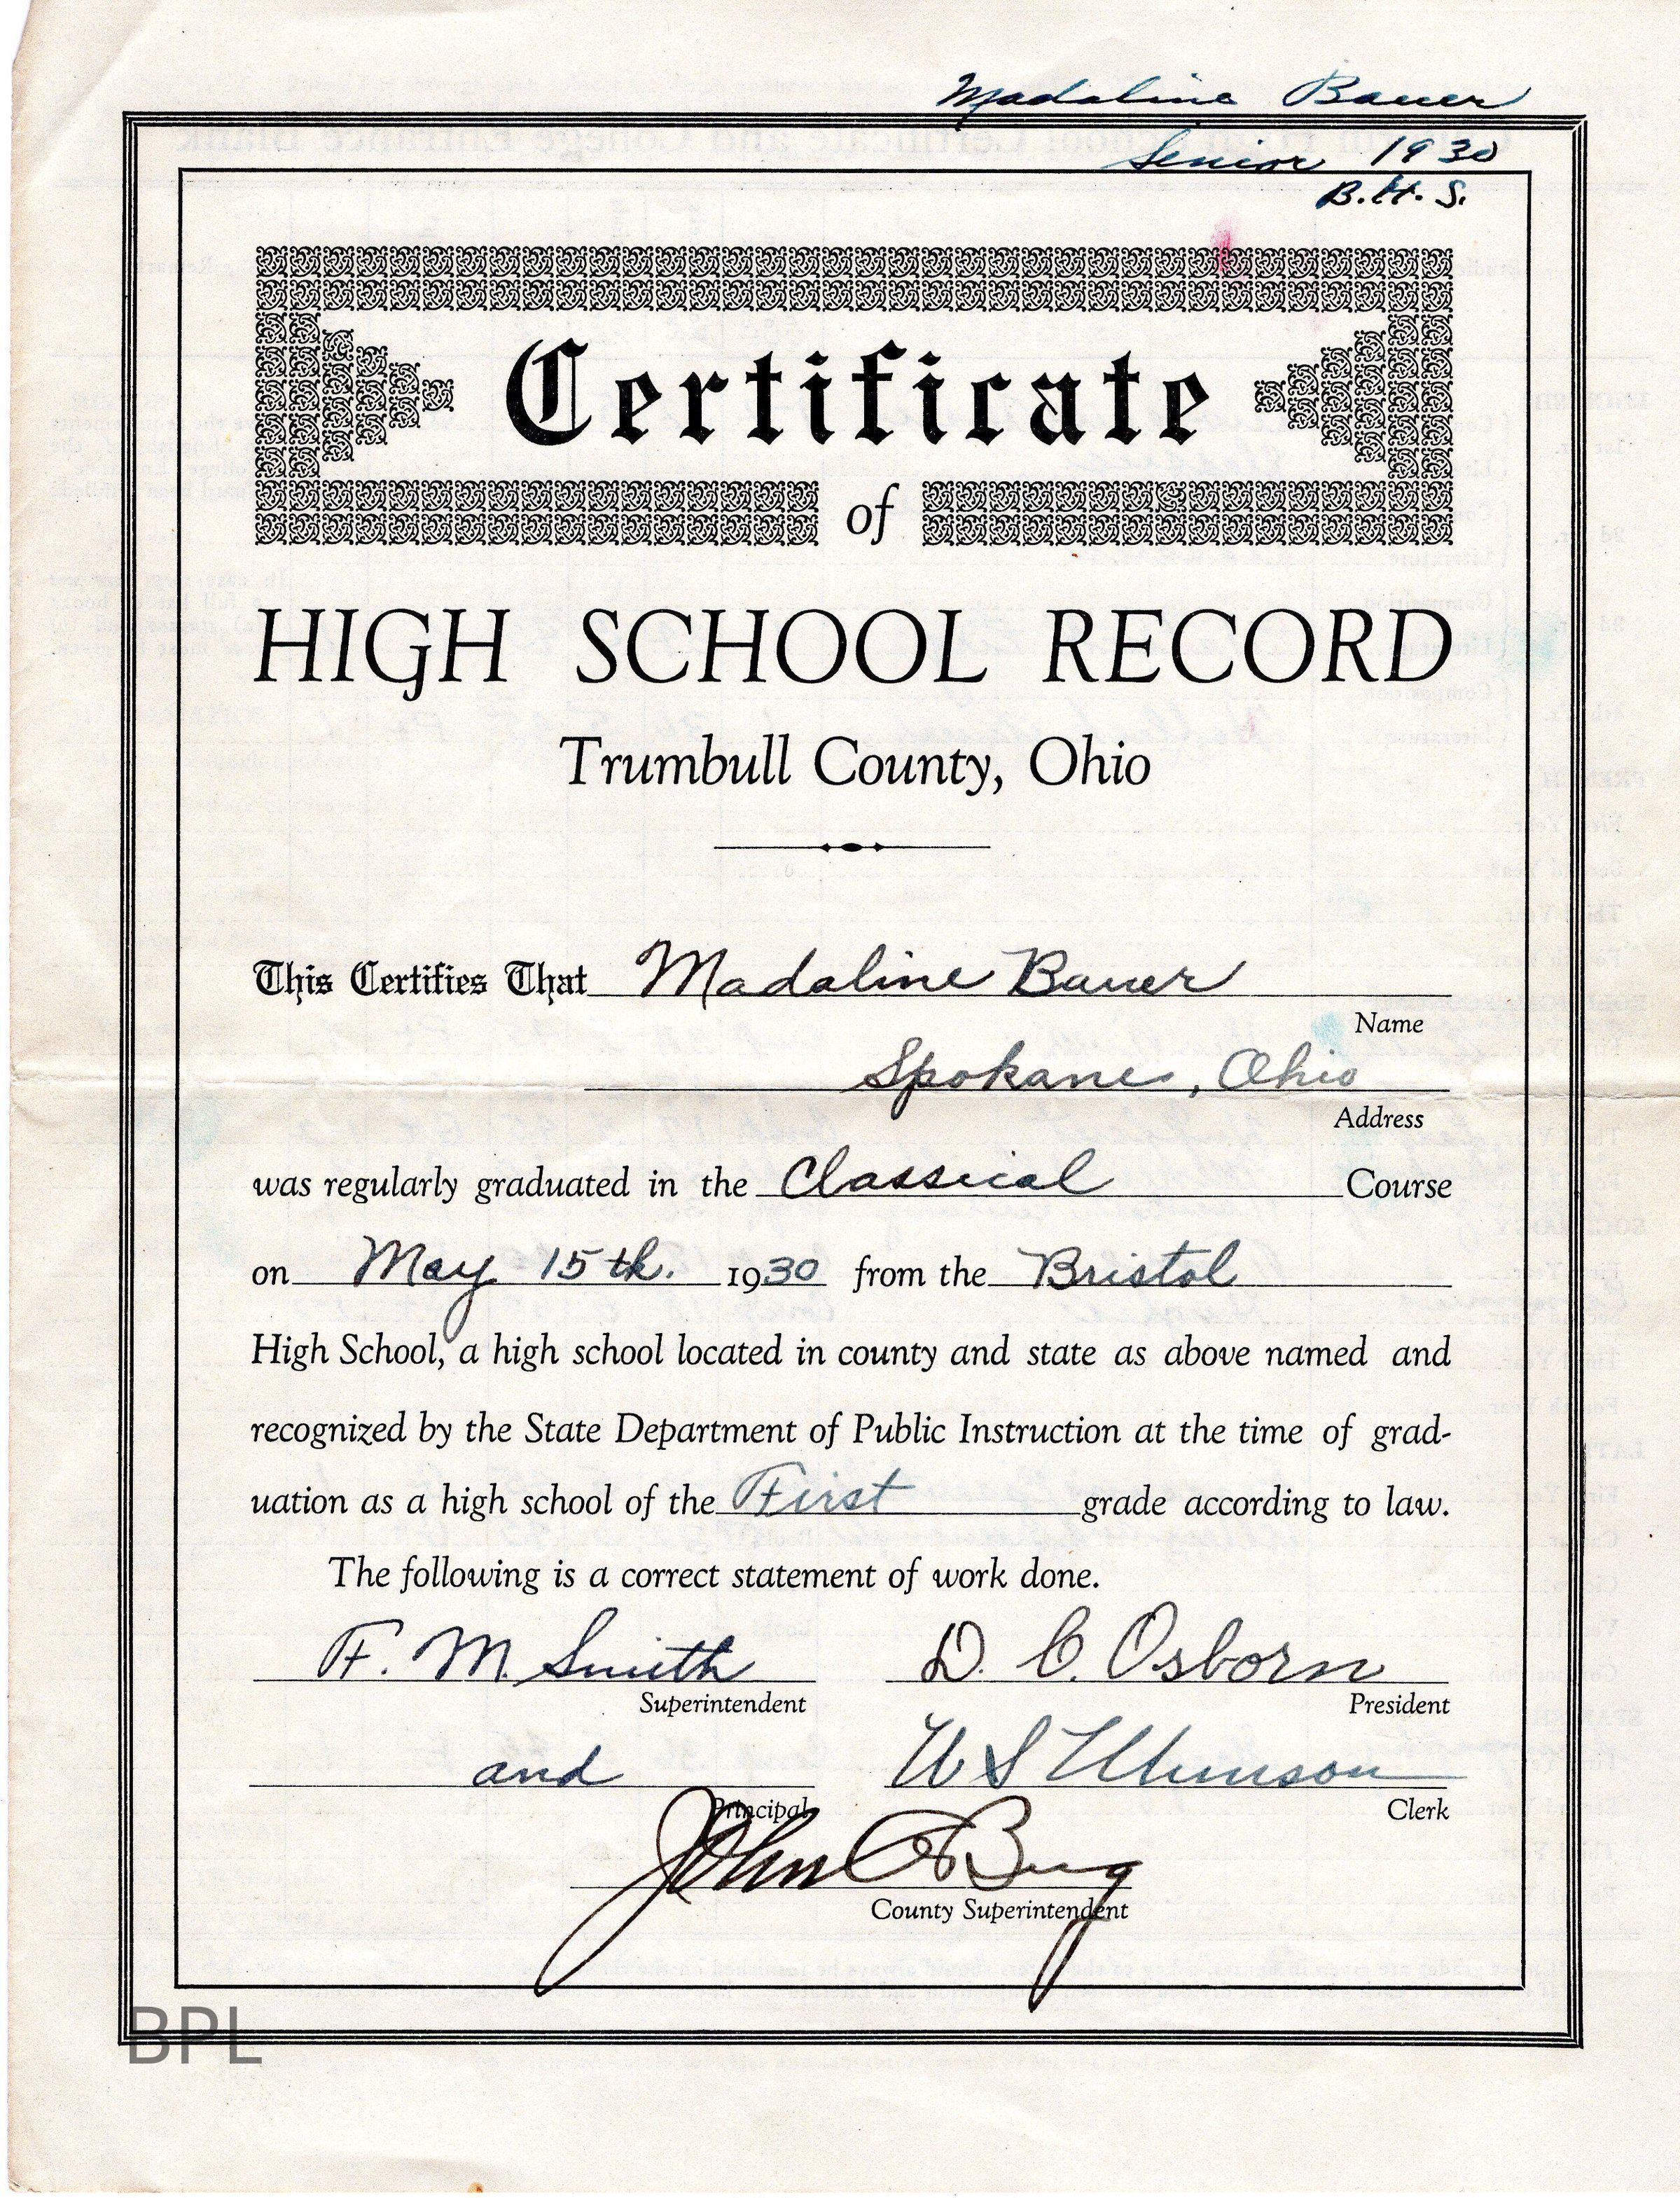 Madaline Bauer
Senior 1930
B.H.S.
Certificate
of
HIGH SCHOOL RECORD
Trumbull County, Ohio
This Certifies That Madaline Bauer
Name
Spokane, Ohio
Address
was regularly graduated in the Classical Course
on May 15th. 1930 from the Bristol
High School, a high school located in county and state as above named and
recognized by the State Department of Public Instruction at the time of grad-
uation as a high school of the First grade according to law.
The following is a correct statement of work done.
F. M. Smith D. C. Osborn
Superintendent President
and W S Munson
Principal Clerk
John Berg
County Superintendent
BPL